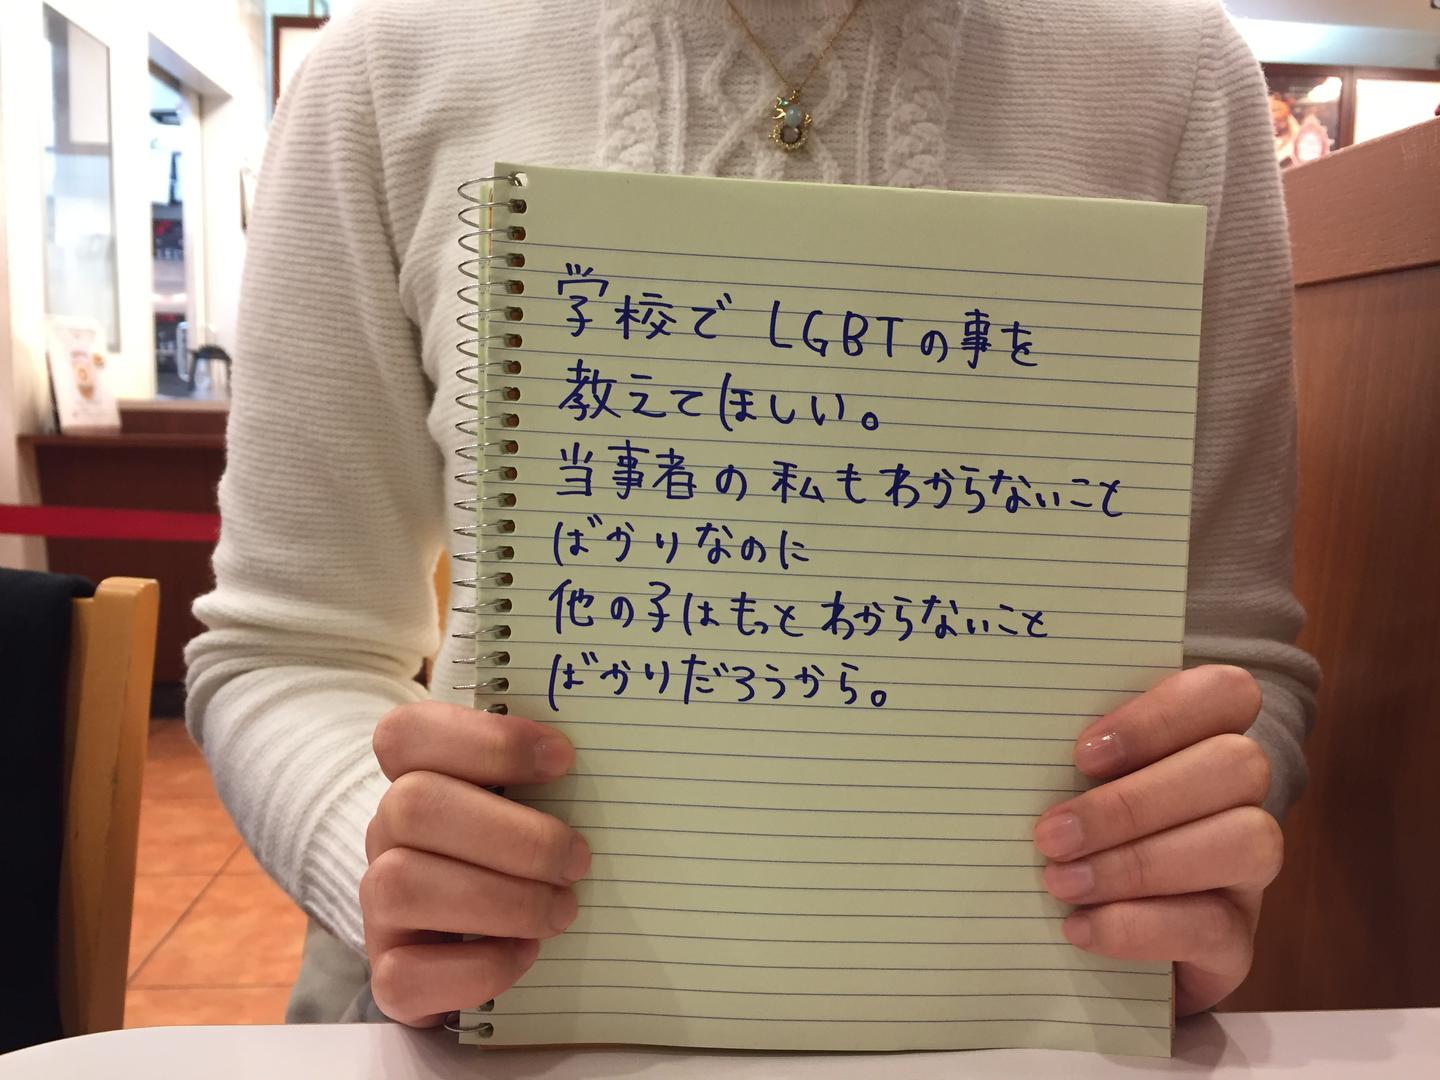 学校でLGBTの事を
教えてほしい。
当事者の私もわからないこと
ばかりなのに
他の子はもっとわからないこと
ばかりだろうから。